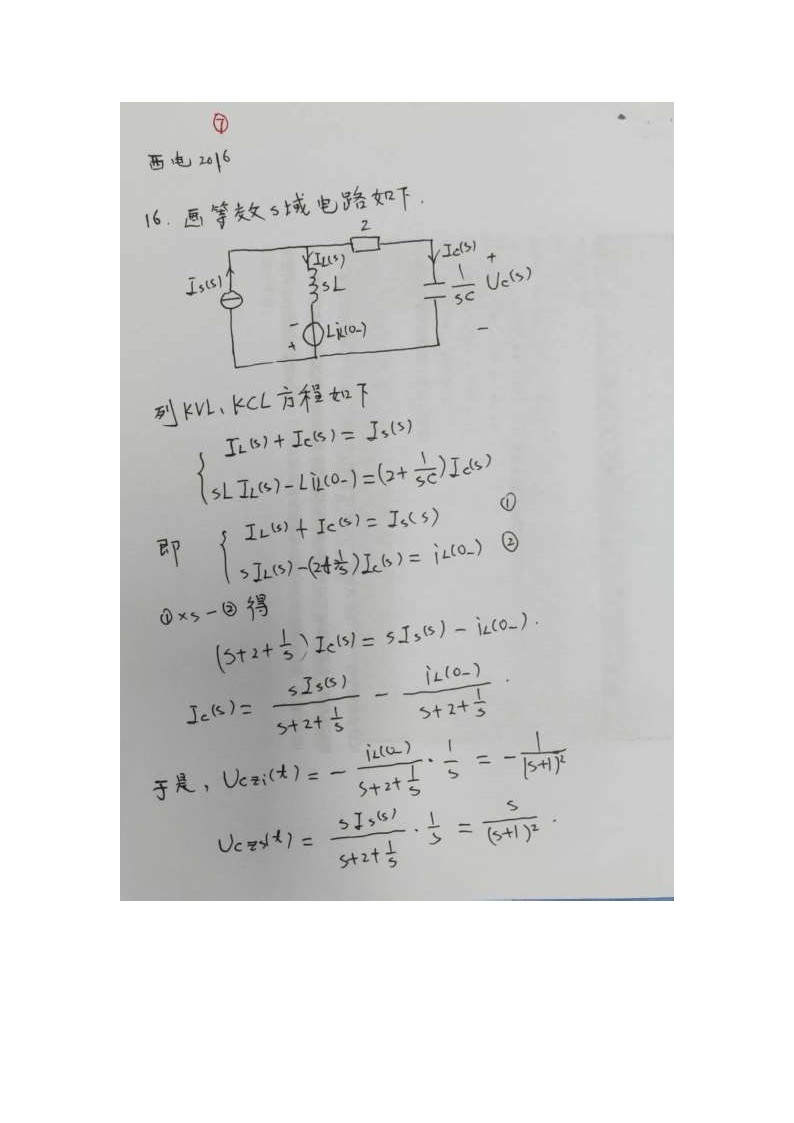 ⑦
西电2016
16. 画等效s域电路如下.
2
Is(s) IL(s) sL Ic(s) + 1/sC Uc(s) −
− + LiL(0-)
列KVL、KCL方程如下
{ IL(s) + Ic(s) = Is(s)
sL IL(s) − LiL(0-) = (2 + 1/sC) Ic(s)
即 { IL(s) + Ic(s) = Is(s) ①
s IL(s) − (2 + 1/s) Ic(s) = iL(0-) ②
① × s − ② 得
(s + 2 + 1/s) Ic(s) = s Is(s) − iL(0-).
Ic(s) = s Is(s) / (s + 2 + 1/s) − iL(0-) / (s + 2 + 1/s).
于是, Uczi(t) = − iL(0-) / (s + 2 + 1/s) · 1/s = − 1/(s+1)²
Uczs(t) = s Is(s) / (s + 2 + 1/s) · 1/s = s/(s+1)².